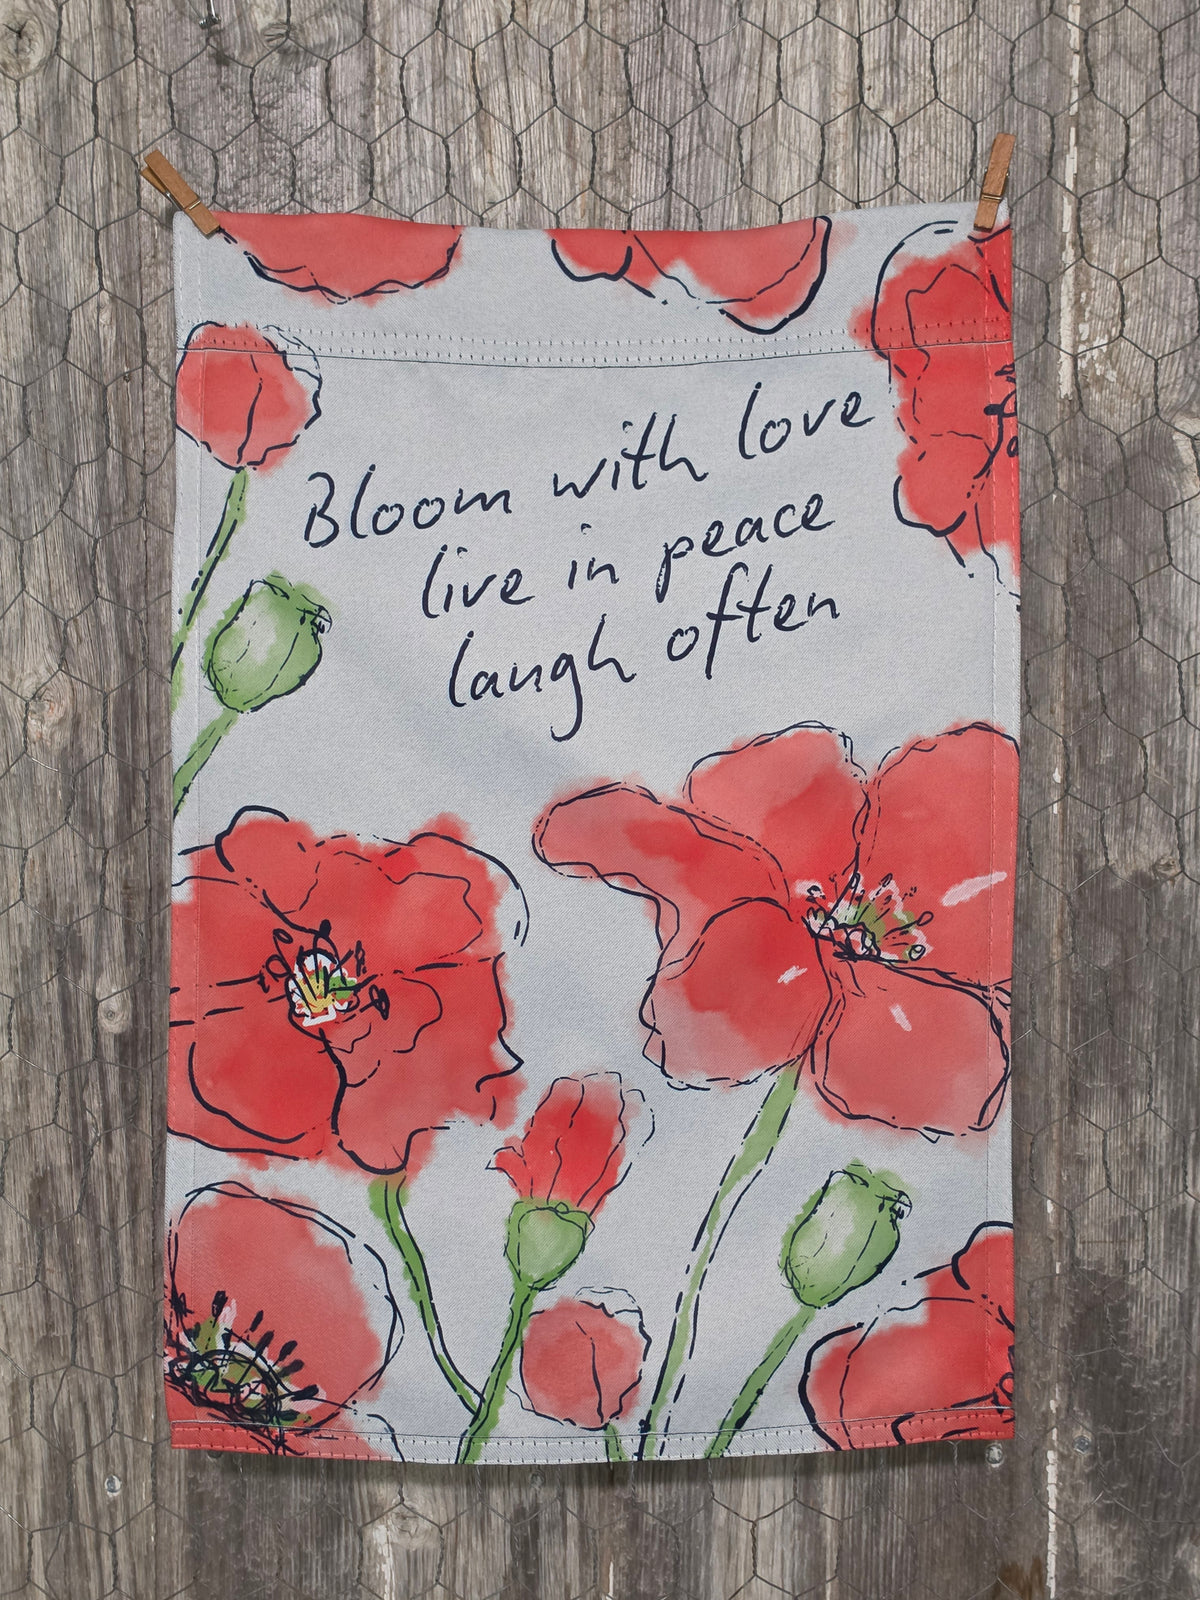 Bloom with love
live in peace
laugh often